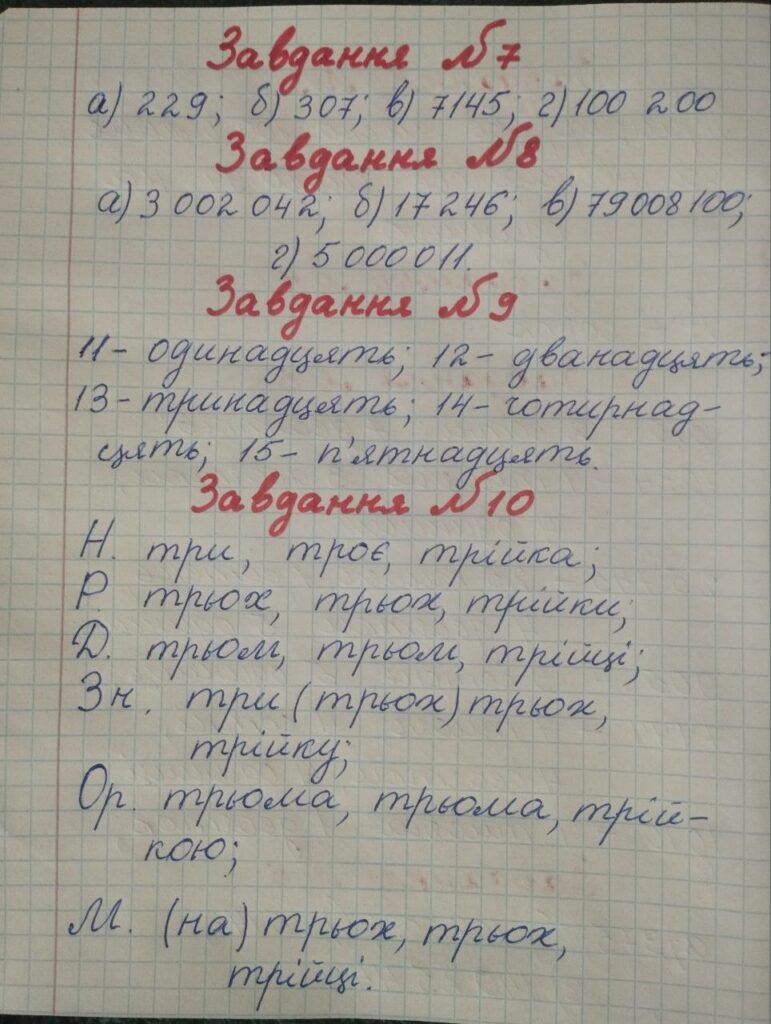 Завдання №7
а) 229; б) 307; в) 7145; г) 100 200
Завдання №8
а) 3 002 042; б) 17 246; в) 79008100;
г) 5 000 011.
Завдання №9
11- одинадцять; 12- дванадцять;
13- тринадцять; 14- чотирнад-
цять; 15- п'ятнадцять.
Завдання №10
Н. три, троє, трійка;
Р. трьох, трьох, трійки;
Д. трьом, трьом, трійці;
Зн. три (трьох) трьох,
трійку;
Ор. трьома, трьома, трій-
кою;
М. (на) трьох, трьох,
трійці.